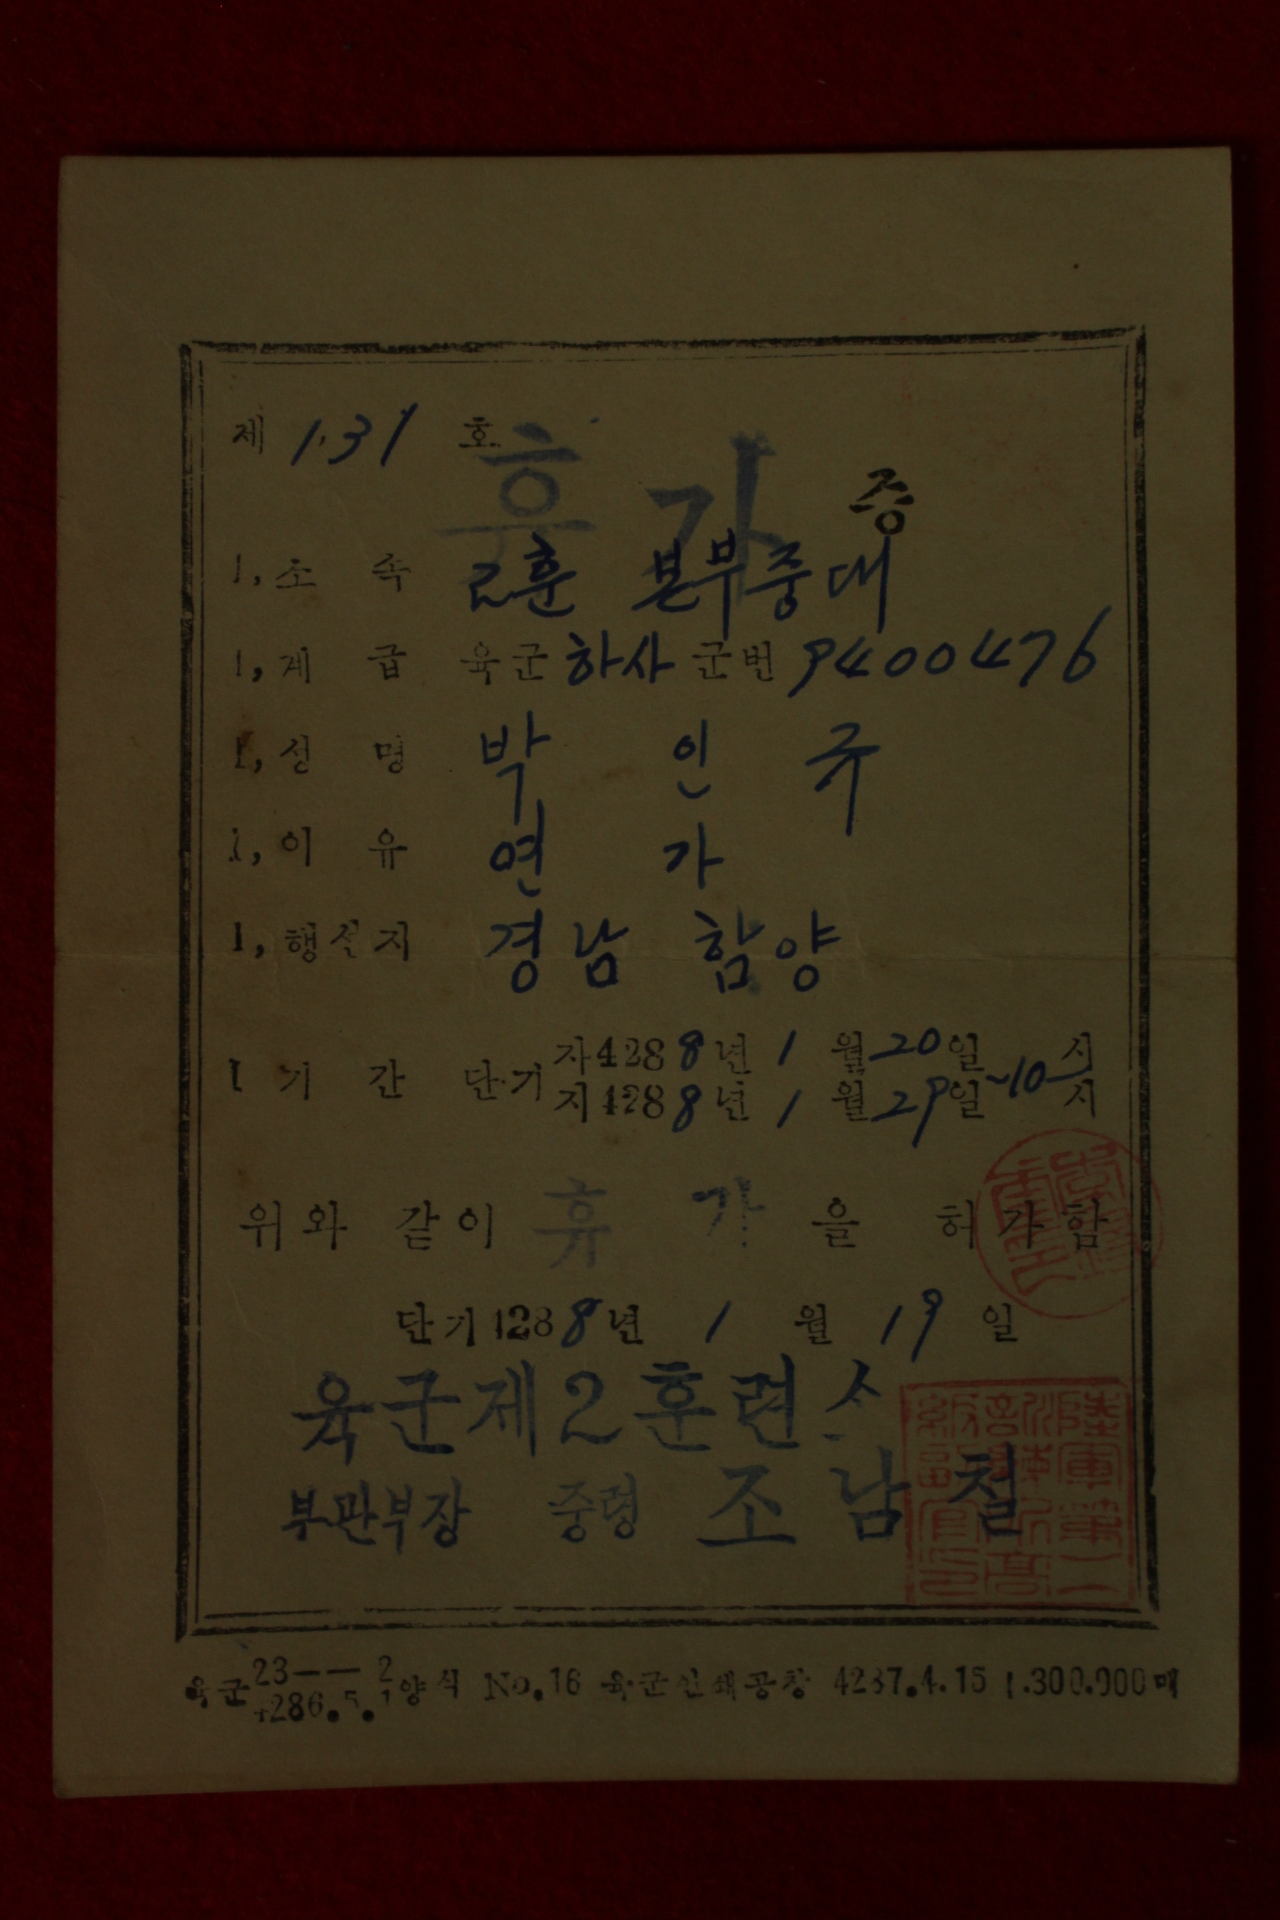 제 1.37 호
휴 가 증
1, 소 속 2훈 본부중대
1, 계 급 육군 하사 군번 9400476
1, 성 명 박 인 규
1, 이 유 연 가
1, 행선지 경남 함양
1 기 간 단기 자4288년 1 월 20일 ~10 시
지4288년 1 월 29일 시
위와 같이 휴 가 을 허가함
단기 4288년 1 월 19 일
육군제2훈련소
부관부장 중령 조남철
육군 23——2 양식 No.16 육군인쇄공창 4287.4.15 1.300.000매
4286.5.1